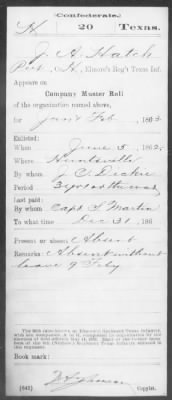 (Confederate.)
H 20 Texas.
J. A. Hatch
Pvt., Co. H, Elmore's Reg't Texas Inf.
Appears on
Company Muster Roll
of the organization named above,
for Jan & Feb, 1863
Enlisted:
When June 5, 1862
Where Huntsville
By whom J. C. Dickie
Period 3 yrs or the war
Last paid:
By whom Capt. Martin
To what time Dec 31, 186
Present or absent Absent
Remarks: Absent without
leave 9 Feby
Book mark:
(642) Copyist.